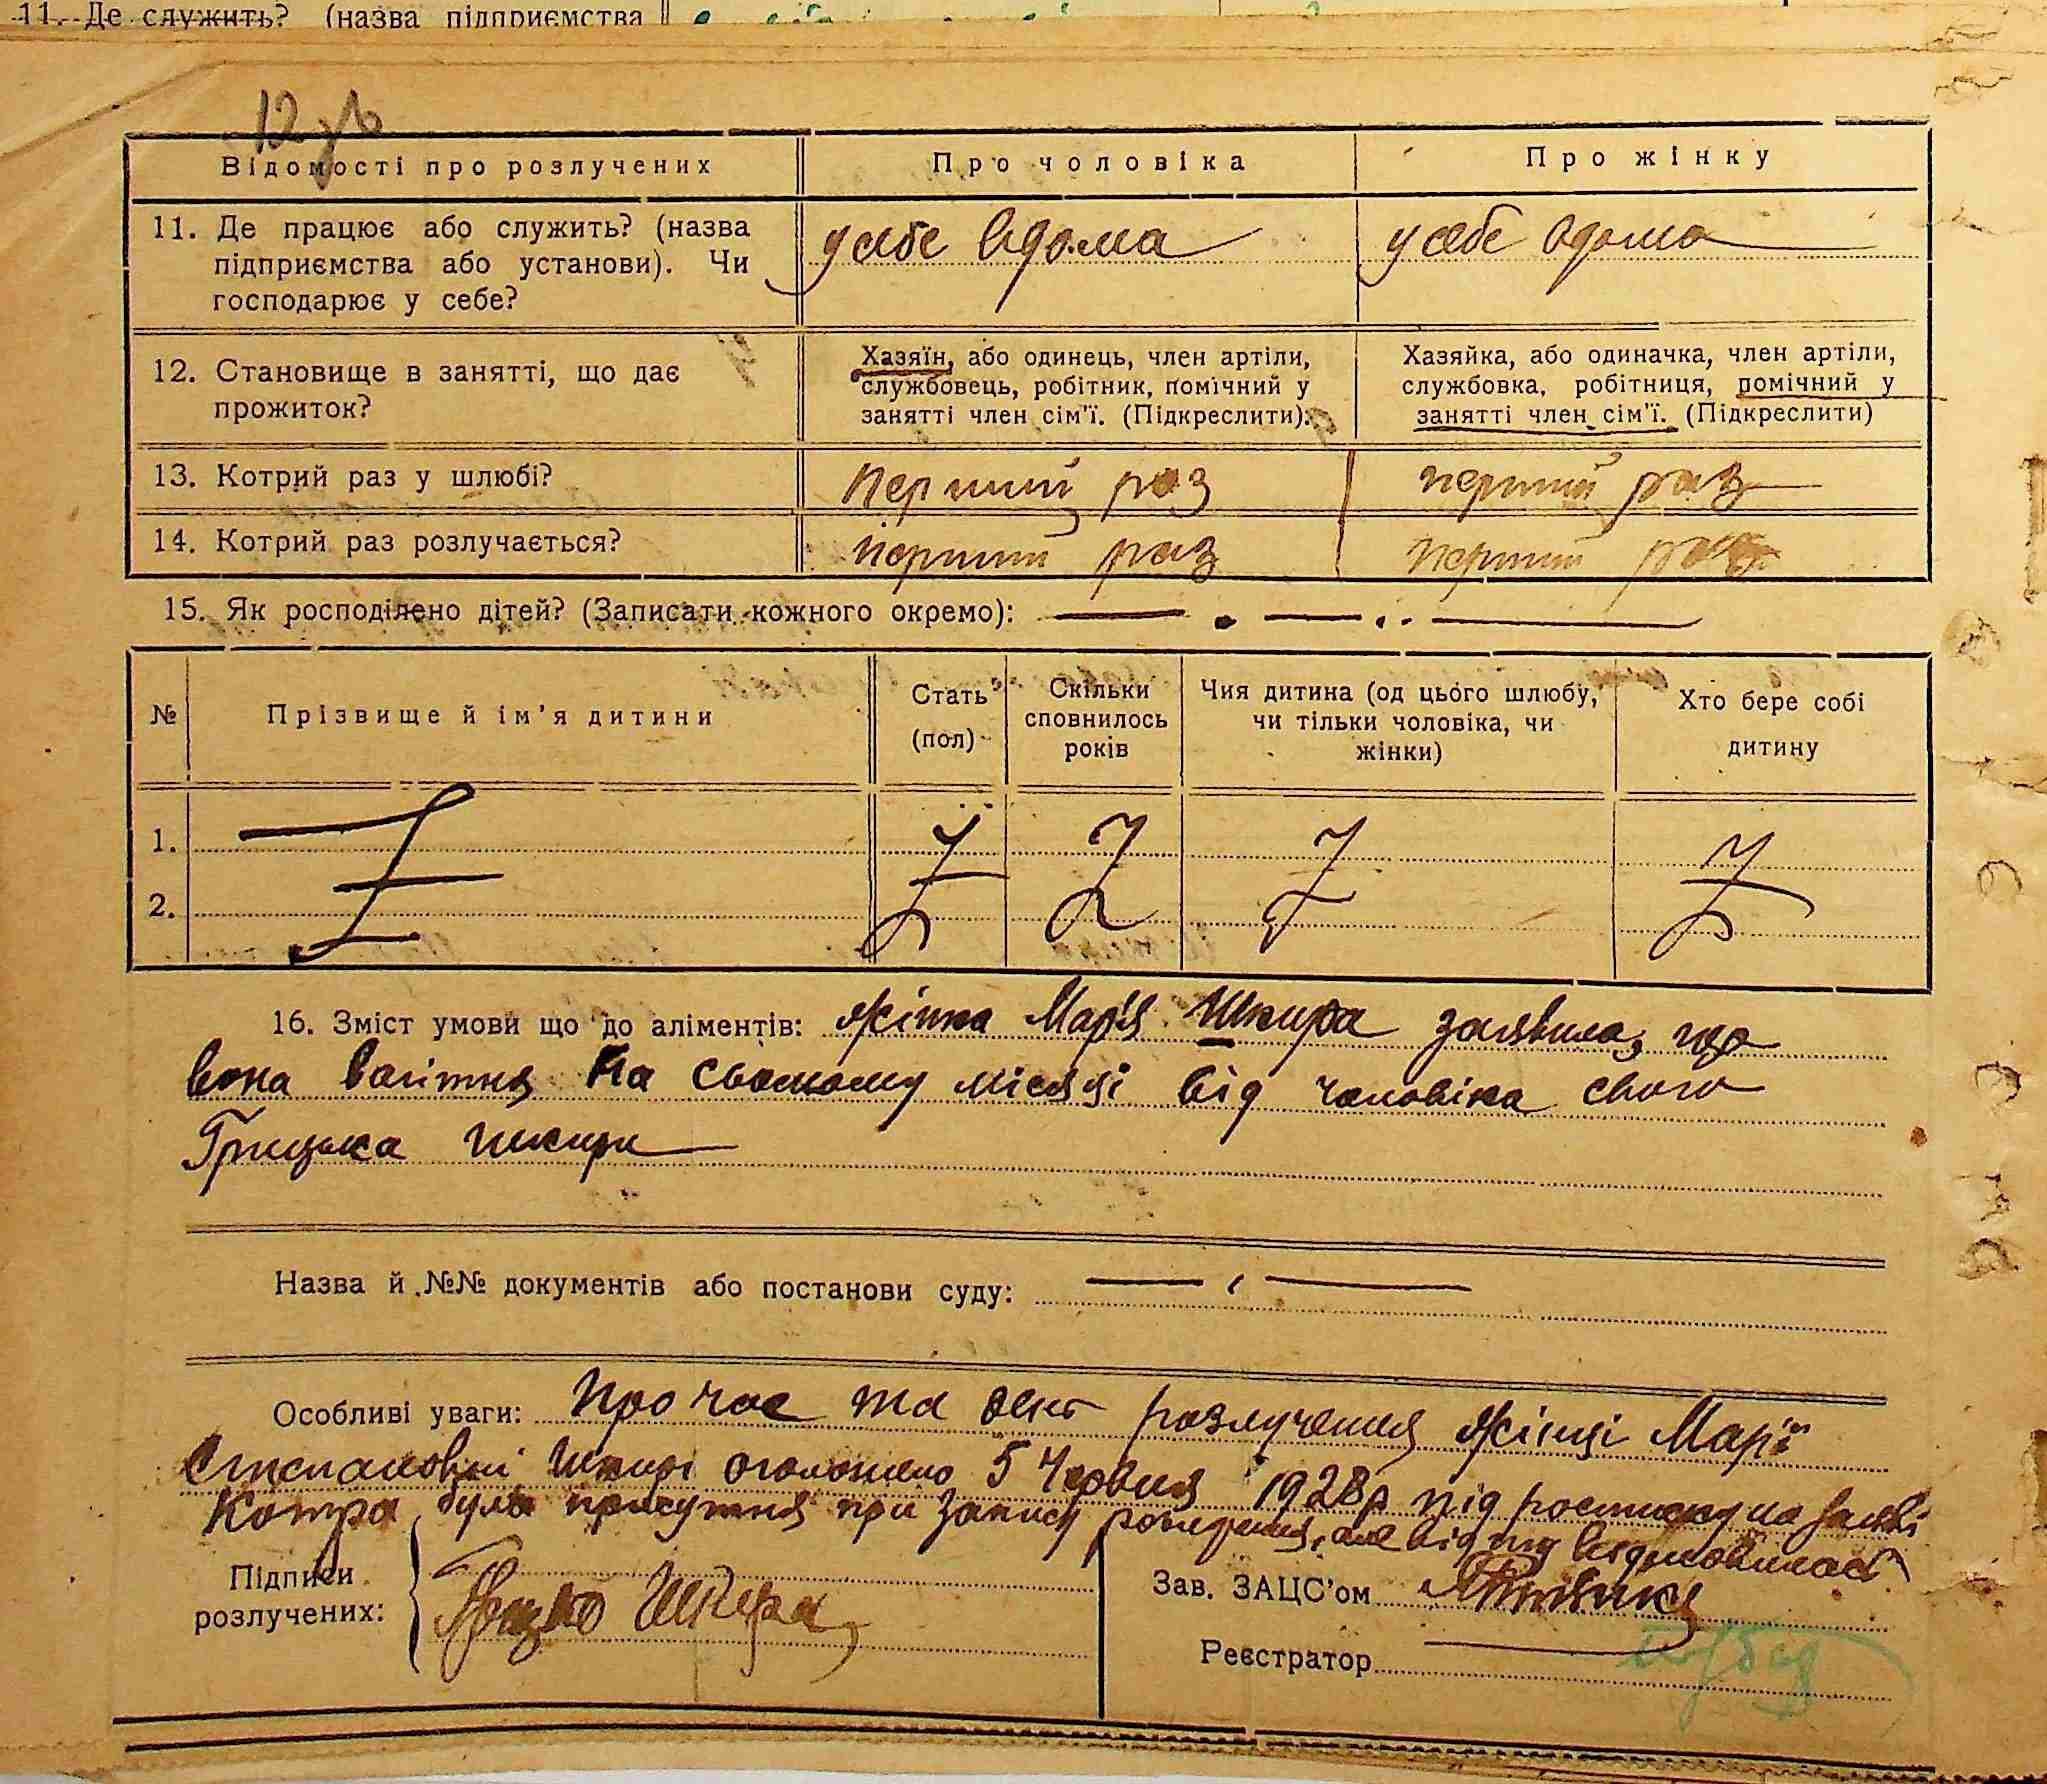 11. Де служить? (назва підприємства
Відомості про розлучених
Про чоловіка
Про жінку
11. Де працює або служить? (назва
підприємства або установи). Чи
господарює у себе?
у себе вдома
у себе вдома
12. Становище в занятті, що дає
прожиток?
Хазяїн, або одинець, член артіли,
службовець, робітник, помічний у
занятті член сім'ї. (Підкреслити).
Хазяйка, або одиначка, член артіли,
службовка, робітниця, помічний у
занятті член сім'ї. (Підкреслити)
13. Котрий раз у шлюбі?
перший раз
перший раз
14. Котрий раз розлучається?
перший раз
перший раз
15. Як росподілено дітей? (Записати кожного окремо):
№
Прізвище й ім'я дитини
Стать
(пол)
Скільки
сповнилось
років
Чия дитина (од цього шлюбу,
чи тільки чоловіка, чи
жінки)
Хто бере собі
дитину
1.
2.
16. Зміст умови що до аліментів: жінка Мар'я Шкира заявила, що
вона вагітна на сьомому місяці від чоловіка свого
Грицька Шкири
Назва й №№ документів або постанови суду:
Особливі уваги: Про час та день розлучення жінці Марії
Степановні Шкирі оголошено 5 Червня 1928р під росписку на заяві
Котра була присутня при запису, але від відмовилась
Підписи
розлучених:
Грицько Шкира
Зав. ЗАЦС'ом
Реєстратор